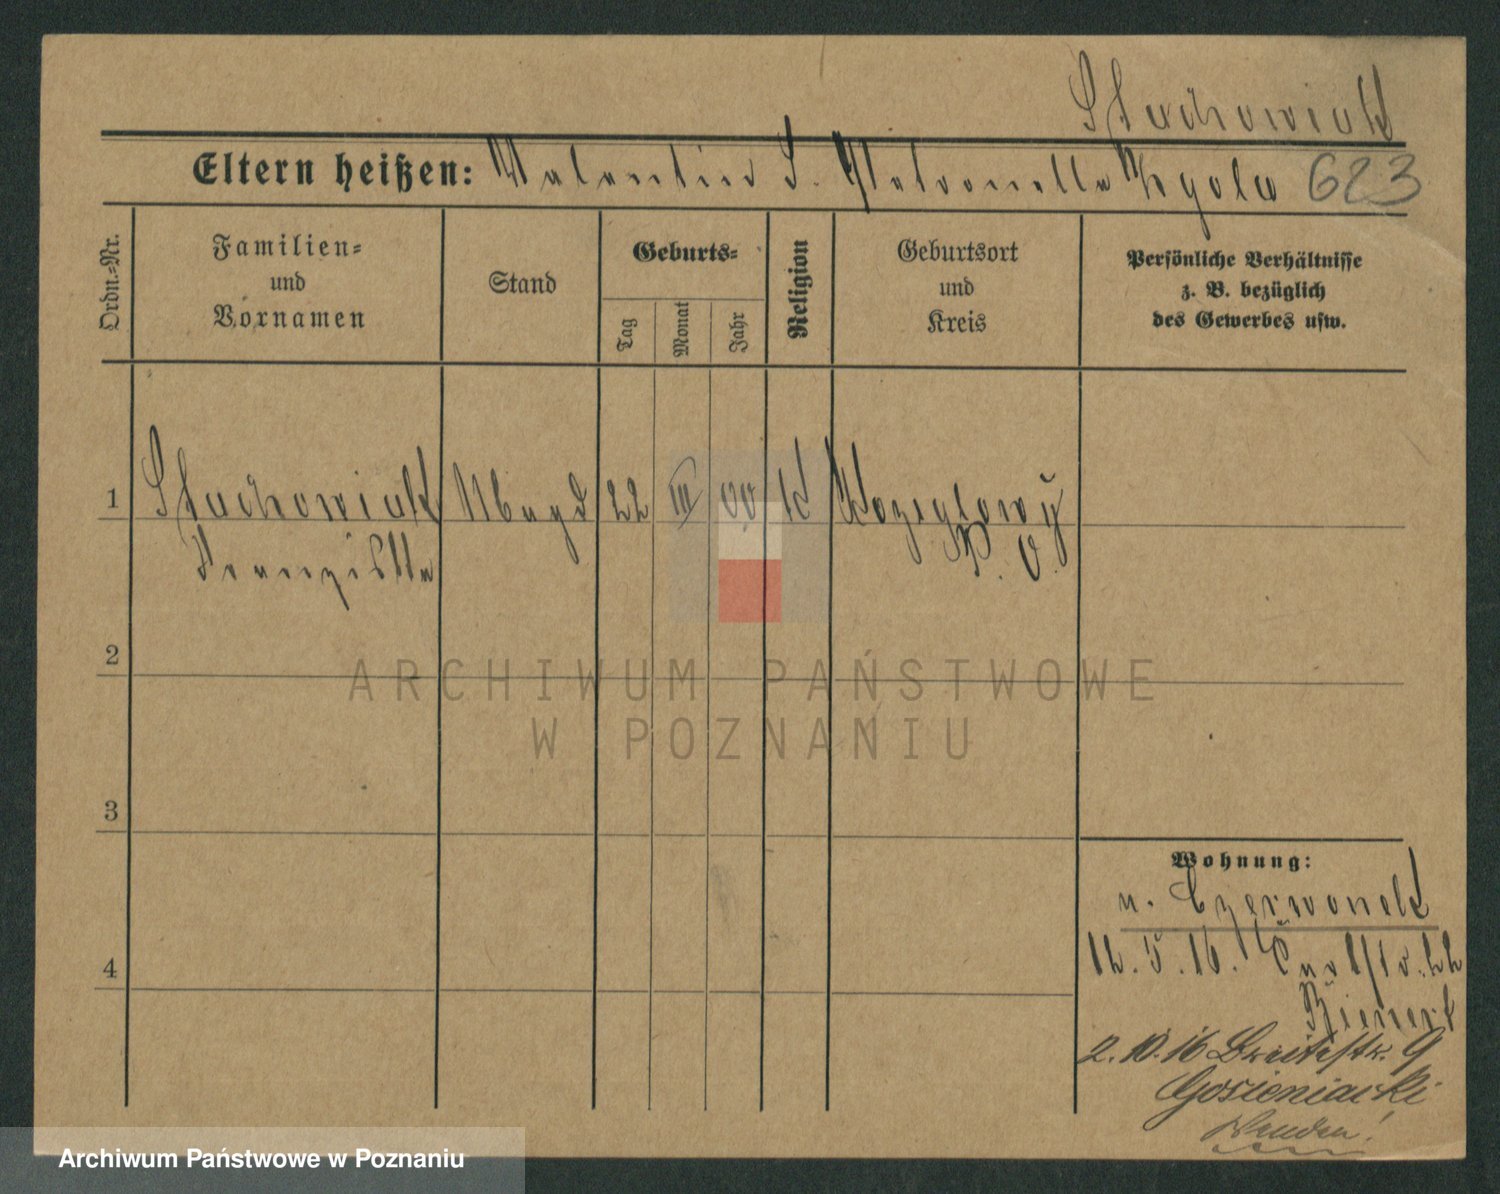 Stachowiak
Eltern heißen: Valentin S. Petronella Zgola 623
Ordn.-Nr.
Familien-
und
Vornamen
Stand
Geburts-
Tag
Monat
Jahr
Religion
Geburtsort
und
Kreis
Persönliche Verhältnisse
z. B. bezüglich
des Gewerbes usw.
1 Stachowiak Magd 22 III 00 K Koziglowy
Franziska P. O.
2
3
4
Wohnung:
v. Czerwonak
12. 5. 16.
Bienert
2. 10. 16 Breitestr. 9
Gosieniecki
Wenden!
ARCHIWUM PAŃSTWOWE
W POZNANIU
Archiwum Państwowe w Poznaniu